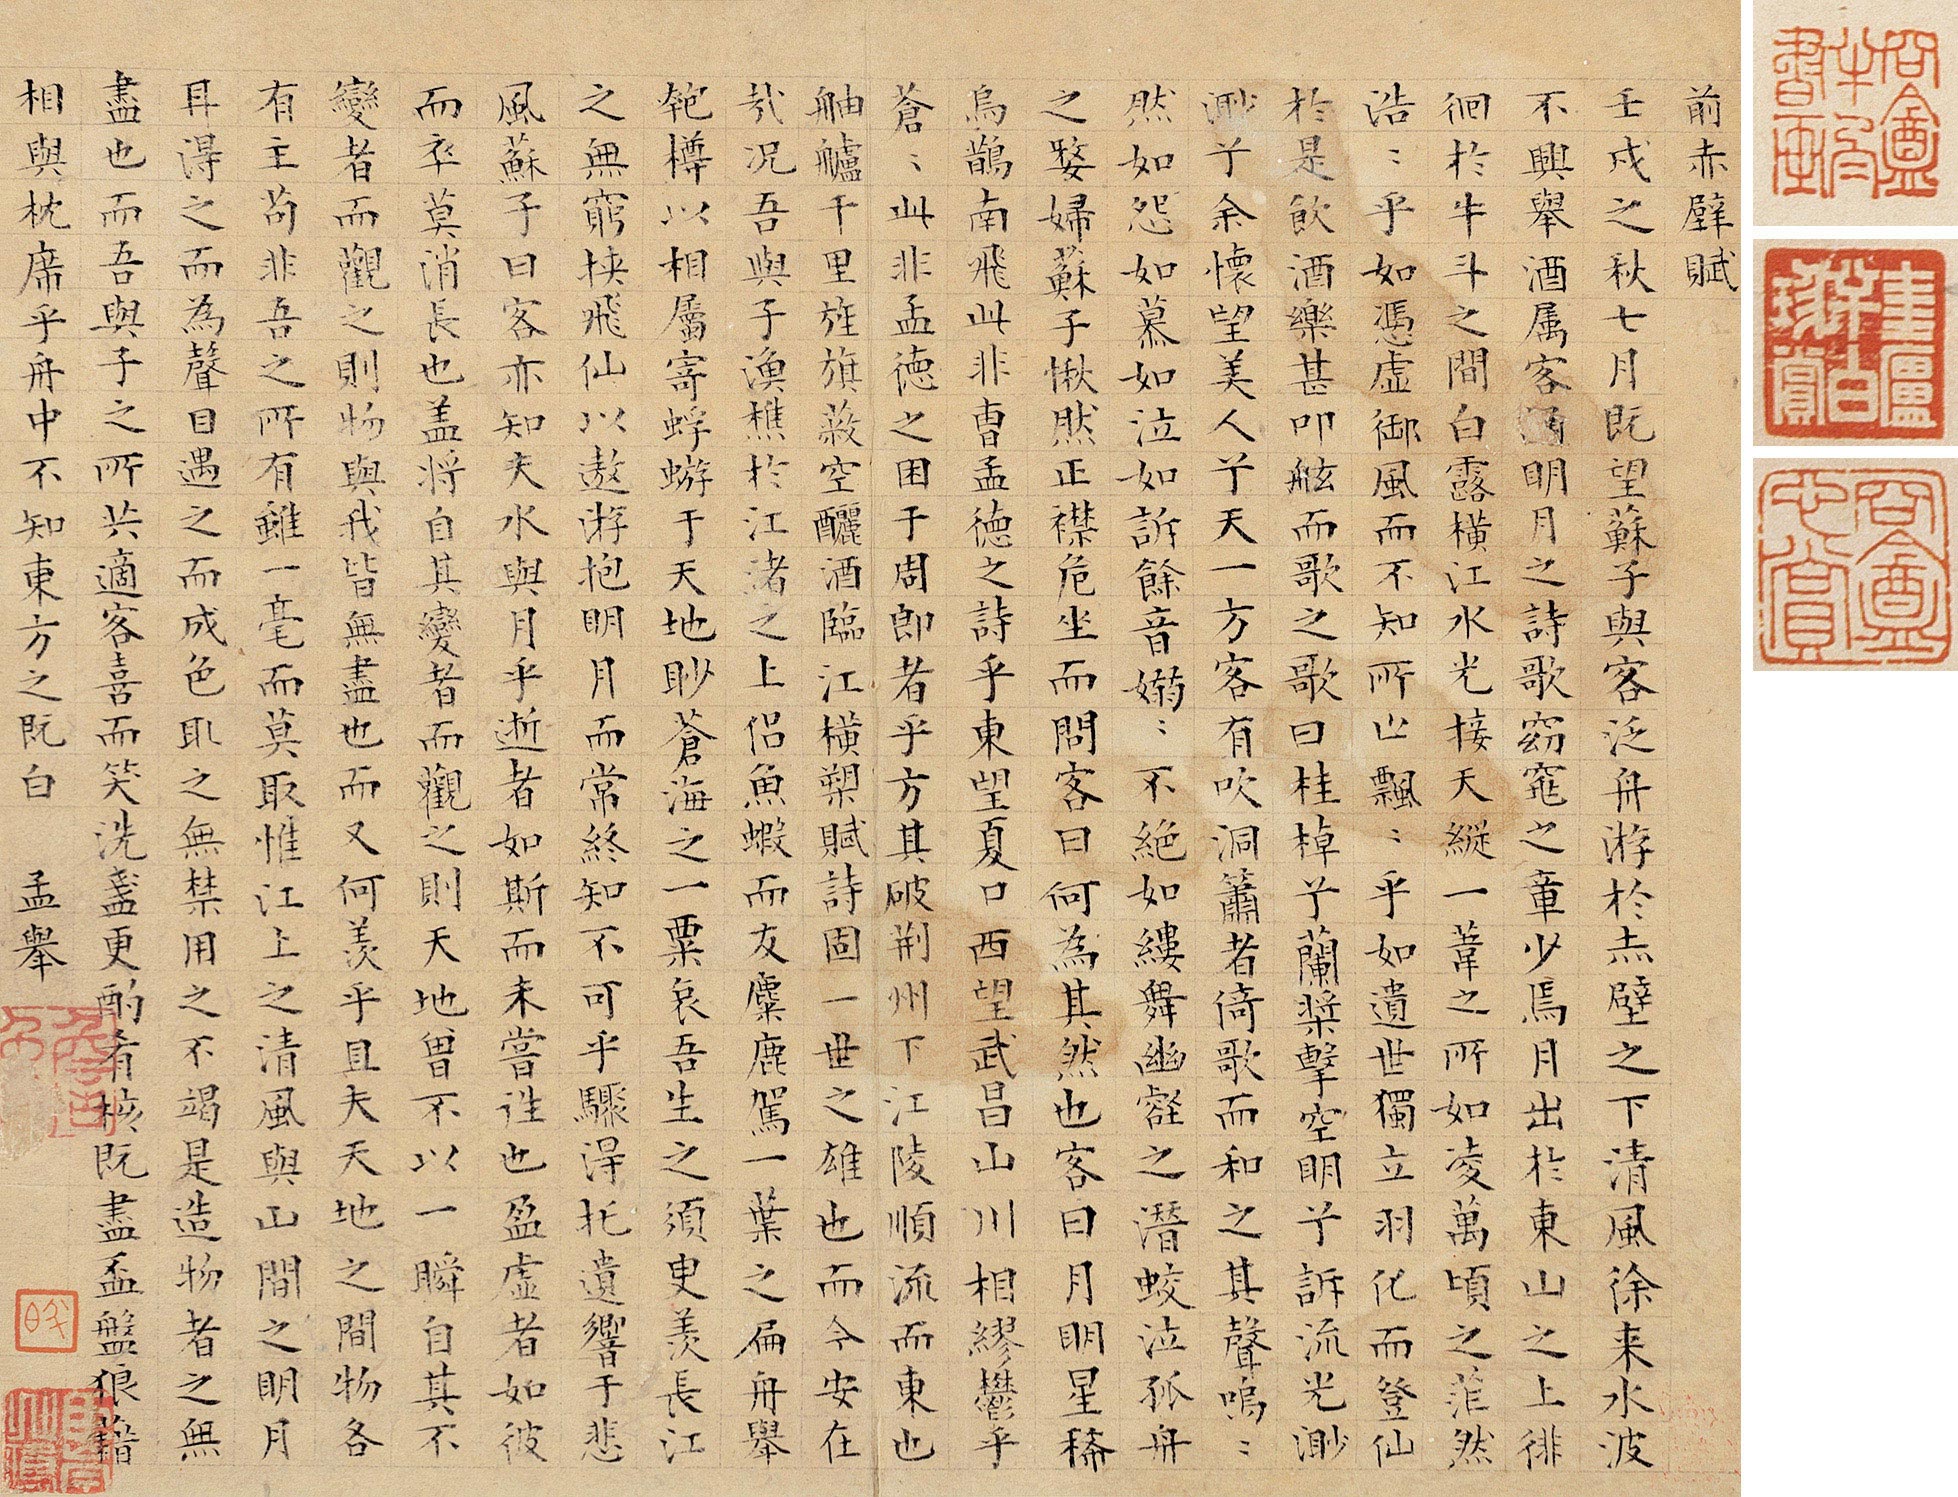 前赤壁賦
壬戌之秋七月既望蘇子與客泛舟游於赤壁之下清風徐来水波
不興舉酒属客誦明月之詩歌窈窕之章少焉月出於東山之上徘
徊於牛斗之間白露橫江水光接天縱一葦之所如凌萬頃之茫然
浩〻乎如馮虛御風而不知所止飄〻乎如遺世獨立羽化而登仙
於是飲酒樂甚叩舷而歌之歌曰桂棹兮蘭槳擊空明兮訴流光渺
渺兮余懷望美人兮天一方客有吹洞簫者倚歌而和之其聲嗚〻
然如怨如慕如泣如訴餘音嫋〻不絕如縷舞幽壑之潛蛟泣孤舟
之嫠婦蘇子愀然正襟危坐而問客曰何為其然也客曰月明星稀
烏鵲南飛此非曹孟德之詩乎東望夏口西望武昌山川相繆鬱乎
蒼〻此非孟德之困于周郎者乎方其破荆州下江陵順流而東也
舳艫千里旌旗蔽空釃酒臨江橫槊賦詩固一世之雄也而今安在
哉况吾與子漁樵於江渚之上侣魚蝦而友麋鹿駕一葉之扁舟舉
匏樽以相屬寄蜉蝣于天地眇蒼海之一粟哀吾生之須臾羨長江
之無窮挟飛仙以遨游抱明月而常終知不可乎驟得托遺響于悲
風蘇子曰客亦知夫水與月乎逝者如斯而未嘗往也盈虛者如彼
而卒莫消長也盖将自其變者而觀之則天地曾不以一瞬自其不
變者而觀之則物與我皆無盡也而又何羨乎且夫天地之間物各
有主苟非吾之所有雖一毫而莫取惟江上之清風與山間之明月
耳得之而為聲目遇之而成色取之無禁用之不竭是造物者之無
盡也而吾與子之所共適客喜而笑洗盞更酌肴核既盡盃盤狼藉
相與枕席乎舟中不知東方之既白　孟舉